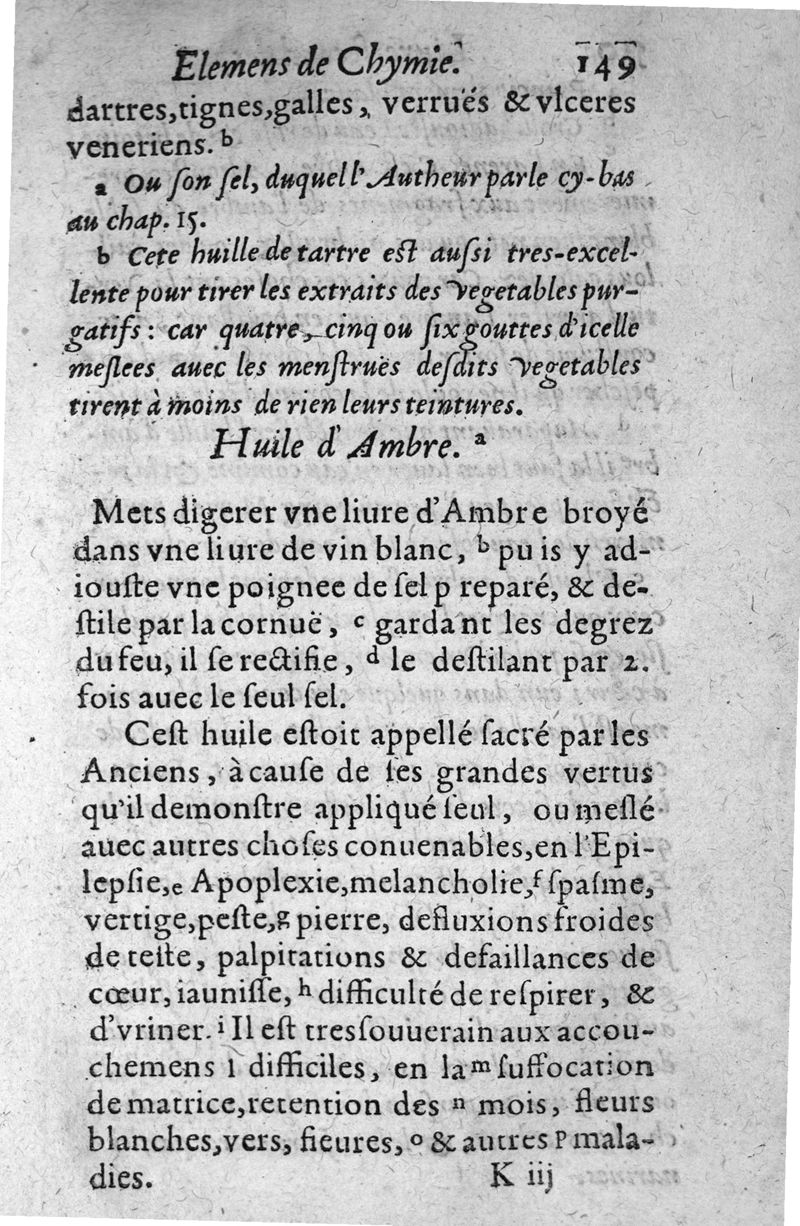 Elemens de Chymie. 149
dartres,tignes,galles, verruës & vlceres
veneriens. b
a Ou ſon ſel, duquel l'Autheur parle cy-bas
au chap. 15.
b Cete huille de tartre eſt auſsi tres-excel-
lente pour tirer les extraits des vegetables pur-
gatifs : car quatre, cinq ou ſix gouttes d'icelle
meſlees auec les menſtruës deſdits vegetables
tirent à moins de rien leurs teintures.
Huile d'Ambre. a
Mets digerer vne liure d'Ambre broyé
dans vne liure de vin blanc, b puis y ad-
iouſte vne poignee de ſel preparé, & de-
ſtile par la cornuë, c gardant les degrez
du feu, il ſe rectifie, d le deſtilant par 2.
fois auec le ſeul ſel.
Ceſt huile eſtoit appellé ſacré par les
Anciens, à cauſe de ſes grandes vertus
qu'il demonſtre appliqué ſeul, ou meſlé
auec autres choſes conuenables,en l'Epi-
lepſie,e Apoplexie,melancholie,f ſpaſme,
vertige,peſte,g pierre, defluxions froides
de teſte, palpitations & defaillances de
cœur, iauniſſe, h difficulté de reſpirer, &
d'vriner. i Il eſt tresſouuerain aux accou-
chemens l difficiles, en la m ſuffocation
de matrice,retention des n mois, fleurs
blanches,vers, fieures, o & autres p mala-
dies. K iij